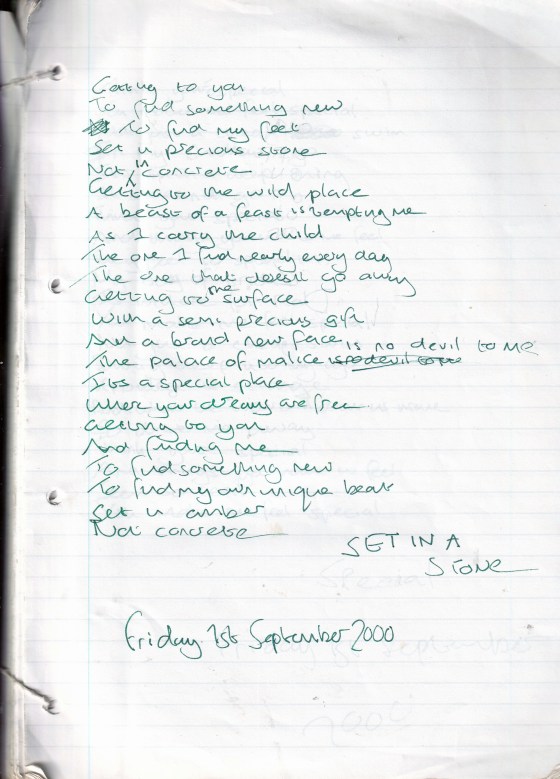 Getting to you
To find something new
To find my feet
Set in precious stone
Not in concrete
Getting to the wild place
A beast of a feast is tempting me
As I carry the child
The one I find nearly every day
The one that doesn't go away
Getting to the surface
With a semi precious gift
And a brand new face is no devil to me
The palace of malice is no devil to me
It's a special place
Where your dreams are free
Getting to you
And finding me
To find something new
To find my own unique beat
Set in amber
Not concrete
SET IN A
STONE
Friday 1st September 2000